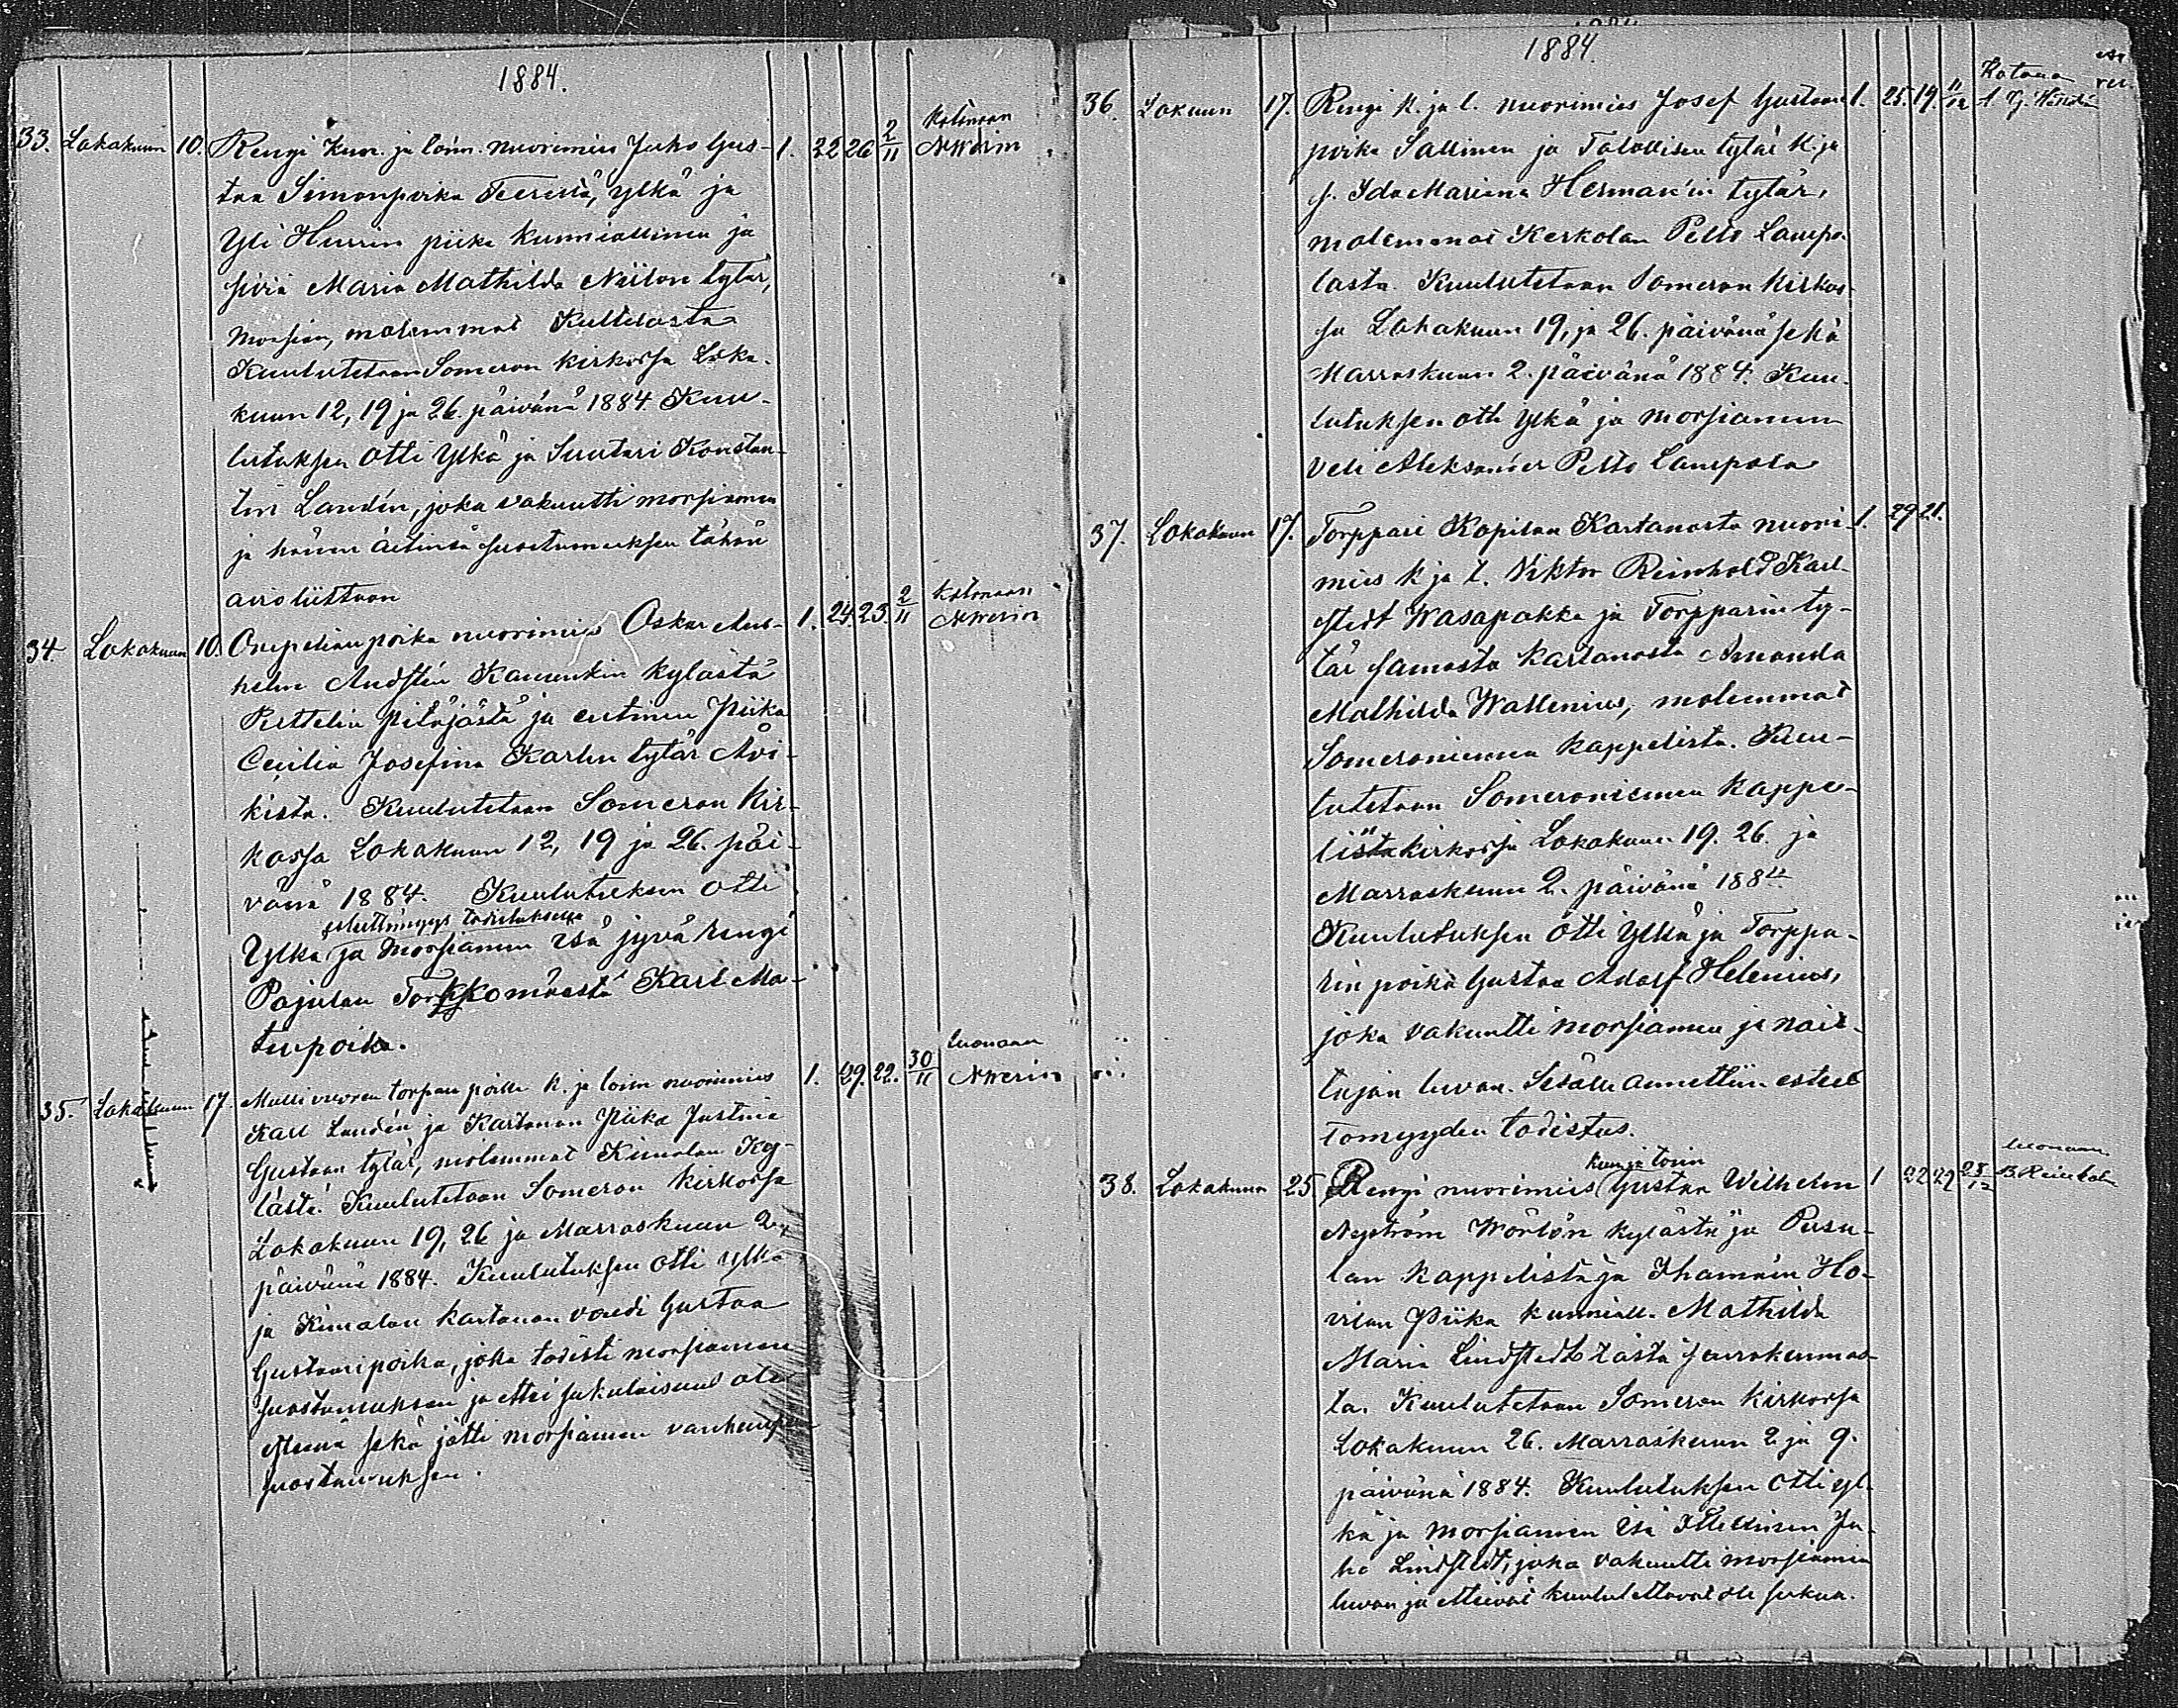 1884.
33. Lokakuun 10. Rengi Kun. ja loim. nuorimies Juho Gus- 1. 22 26 2/11 Kotonaan
taa Simonpoika Teeristä, ylkä ja
Yli Hurrin piika kunniallinen ja
siviä Maria Mathilda Niilon tytär,
morsian, molemmat Kultelasta
Kuulutetaan Someron kirkossa Loka-
kuun 12, 19 ja 26. päivänä 1884. Kuu-
lutuksen otti Ylkä ja Suutari Konstan-
tin Landén, joka vakuutti morsiamen
ja hänen äitinsä suostumuksen tähän
avioliittoon
34. Lokakuun 10. Onpelian poika nuorimies Oskar 1. 24. 23. 2/11 Kotonaan
helm Andstén Kanunkin kylästä
Perttelin pitäjästä ja entinen piika
Cecilia Josefina Karlin tytär Åvi-
kista. Kuulutetaan Someron Kir-
kossa Lokakuun 12, 19 ja 26. päi-
vänä 1884. Kuulutuksen otti
esteettömyys todistuksella
Ylkä ja morsiamen isä jyvä rengi
Pajulan Torkkomäestä Karl Ma-
tinpoika.
35. Lokakuun 17. torpan poika k. ja loim nuorimies 1. 29. 22. 30/11 luonaan
Karl Landén ja Kartanon Piika Justina
Gustaan tytär, molemmat Kimalan Ky-
lästä. Kuulutetaan Someron kirkossa
Lokakuun 19, 26 ja Marraskuun 2.
päivänä 1884. Kuulutuksen otti ylkä
ja Kimalan kartanon vouti Gustaa
Gustaanpoika, joka todisti morsiamen
suostumuksen ja ettei sukulaisuus ole
esteenä sekä jätti morsiamen vanhempien
suostumuksen.
1884.
36. Lokuun 17. Rengi k. ja l. nuorimies Josef Gustaan 1. 25. 19. 11/12 Kotona
poika Sallinen ja Talollisen tytär k. ja
s. Ida Mariana Herman'in tytär,
molemmat Kerkolan Pelto Laurpo-
lasta. Kuulutetaan Someron kirkos-
sa Lokakuun 19, ja 26. päivänä sekä
Marraskuun 2. päivänä 1884. Kuu-
lutuksen otti ylkä ja morsiamen
veli Aleksander Pelto Laurpola
37. Lokakuun 17. Torppari Kopilan Kartanosta nuori- 1. 29 21.
mies k ja l. Viktor Reinhold Karl-
stedt Wasapakka ja Torpparin ty-
tär samasta kartanosta Amanda
Mathilda Wallenius, molemmat
Someroniemen kappelista. Kuu-
lutetaan Someroniemen kappe-
lista kirkossa Lokakuun 19. 26. ja
Marraskuun 2. päivänä 1884
Kuulutuksen otti ylkä ja Torppa-
rin poika Gustaa Adolf Helenius,
joka vakuutti morsiamen ja nait-
tajan luvan. Sisälle annettiin esteet
tomyyden todistus.
kun ja toim
38. Lokakuun 25. Rengi nuorimies Gustaa Wilhelm 1 22 29 28/12 luonaan
Nyström Wörlön kylästä ja Pusu-
lan kappelista ja Ihamäin Ho-
vilan Piika kunniall. Mathilda
Maria Lindstedt tästä seurakunnas-
ta. Kuulutetaan Someron kirkossa
Lokakuun 26. Marraskuun 2 ja 9.
päivänä 1884. Kuulutuksen otti yl-
kä ja morsiamen isä Itsellinen Ju-
ho Lindstedt, joka vakuutti morsiamen
luvan ja etteivät kuulutettavat ole sukua.